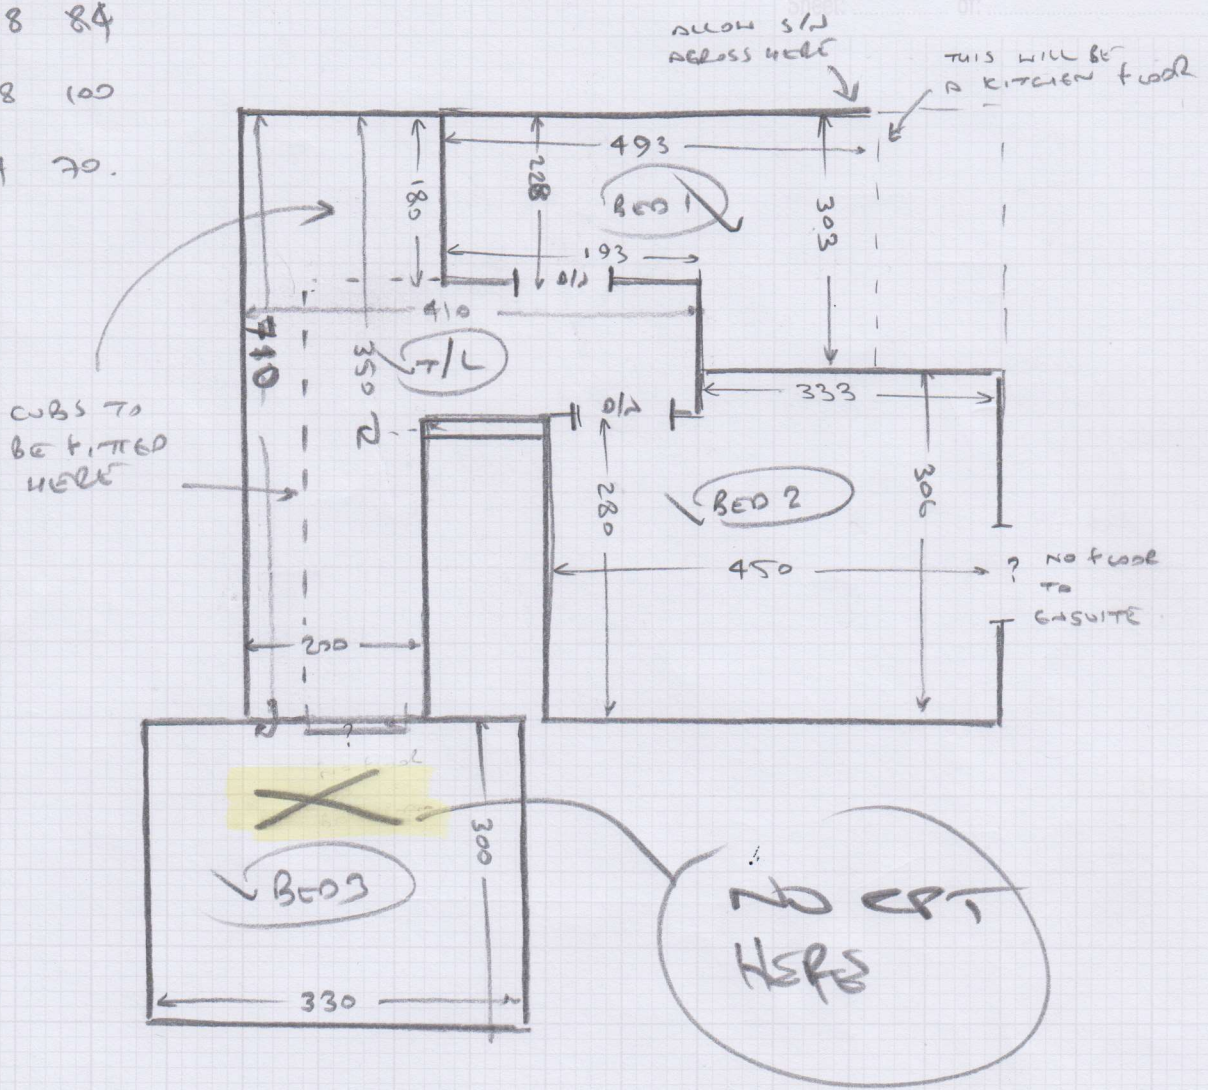 8 84
8 100
70.
ALLOW S/N
ACROSS HERE
THIS WILL BE
A KITCHEN FLOOR
493
180
228
BED 1
303
193
D/N
410
710
350
T/L
333
D/N
CUBS TO
BE FITTED
HERE
280
BED 2
306
450
? NO FLOOR
TO
ENSUITE
200
?
300
BED 3
NO CPT
HERE
330